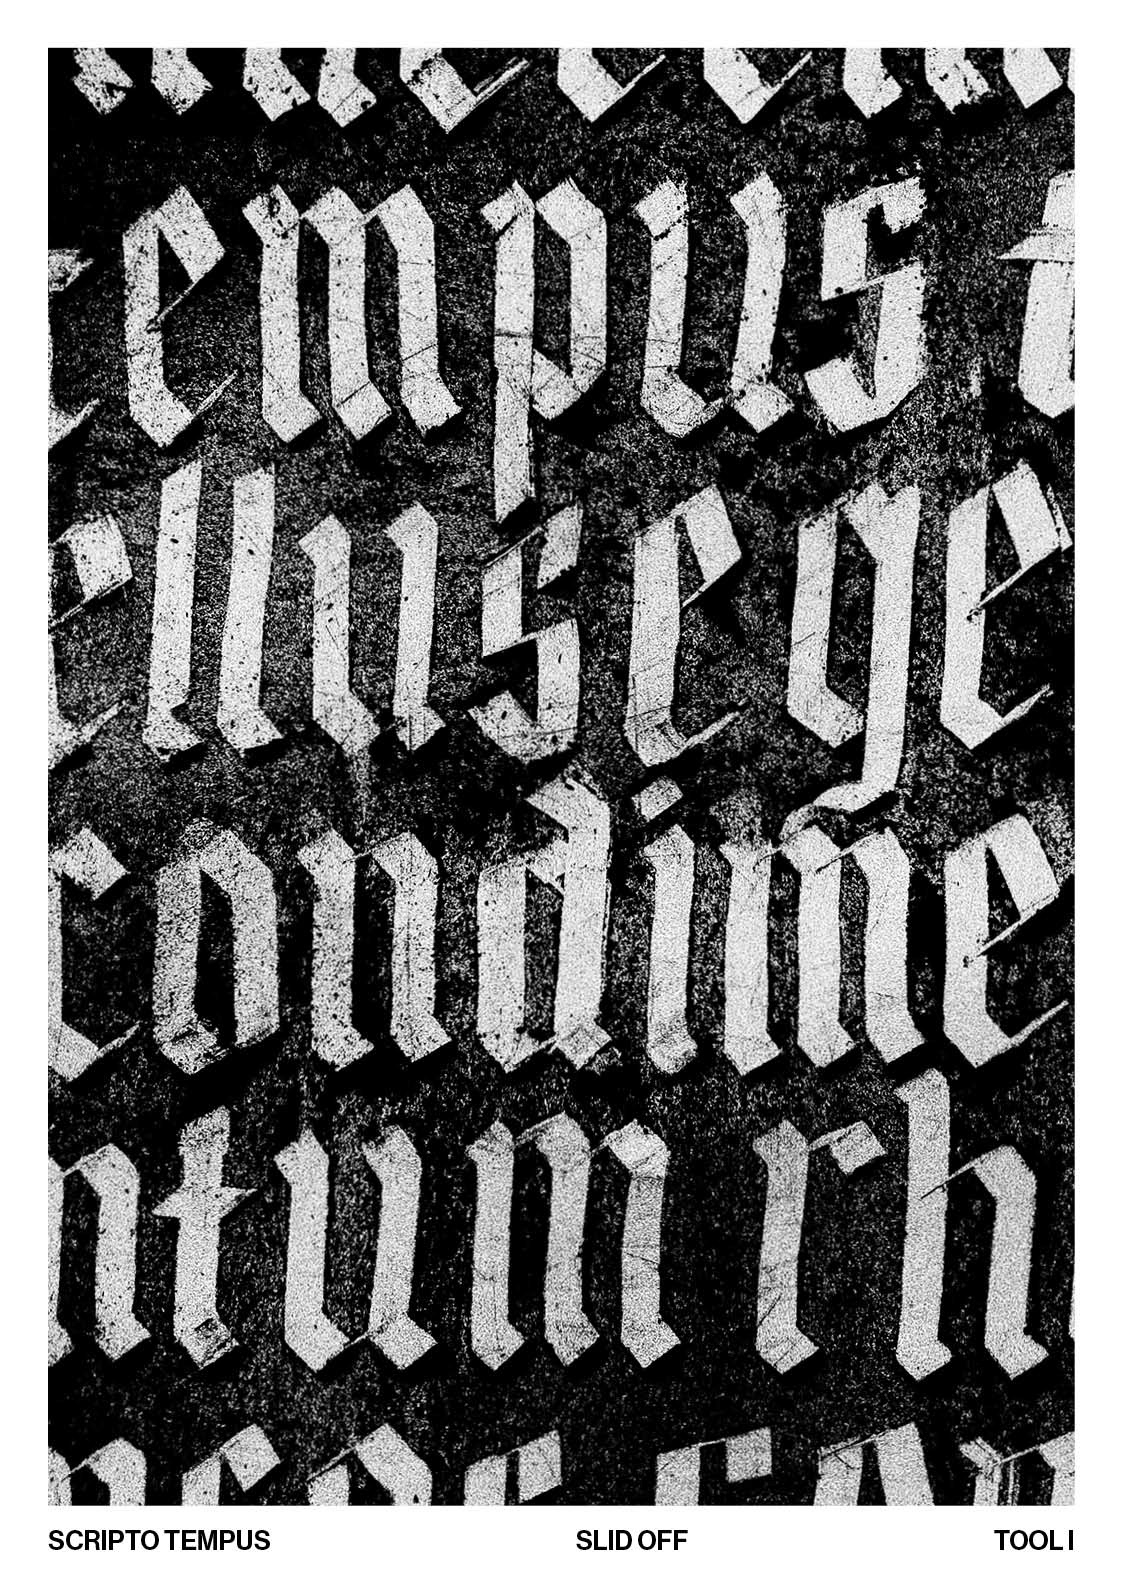 empus
ellus ege
condime
ntum rh
SCRIPTO TEMPUS
SLID OFF
TOOL I